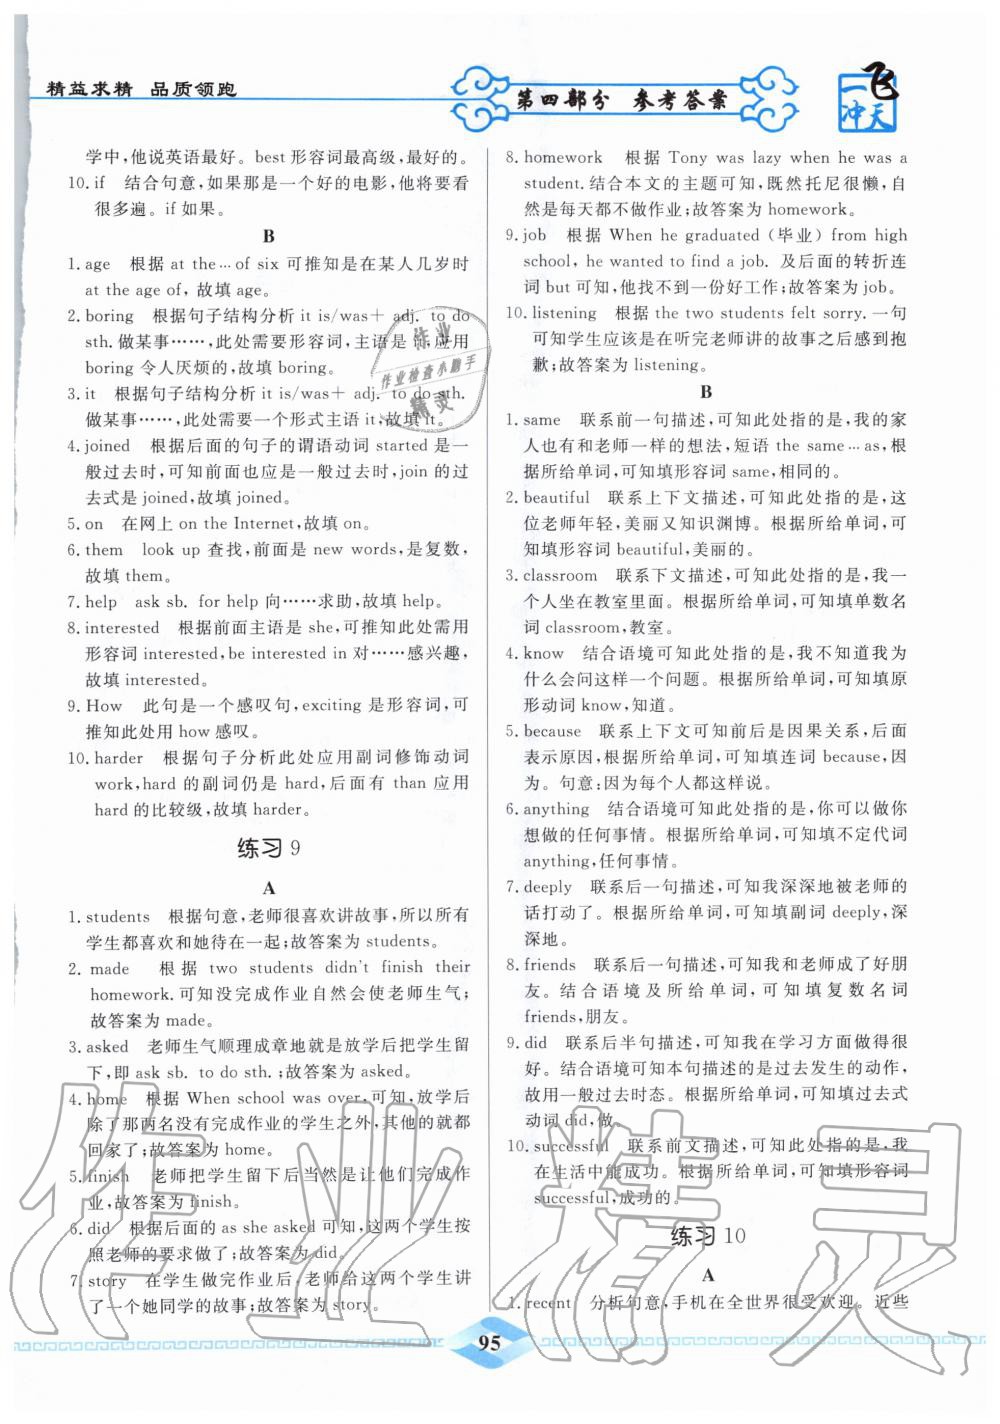 精益求精 品质领跑
第四部分 参考答案
一飞冲天
学中,他说英语最好。best 形容词最高级,最好的。
10. if 结合句意,如果那是一个好的电影,他将要看
很多遍。if 如果。
B
1. age 根据 at the…of six 可推知是在某人几岁时
at the age of, 故填 age。
2. boring 根据句子结构分析 it is/was+ adj. to do
sth. 做某事……,此处需要形容词,主语是 it,应用
boring 令人厌烦的,故填 boring。
3. it 根据句子结构分析 it is/was+ adj. to do sth.
做某事……,此处需要一个形式主语 it,故填 it。
4. joined 根据后面的句子的谓语动词 started 是一
般过去时,可知前面也应是一般过去时,join 的过
去式是 joined,故填 joined。
5. on 在网上 on the Internet,故填 on。
6. them look up 查找,前面是 new words,是复数,
故填 them。
7. help ask sb. for help 向……求助,故填 help。
8. interested 根据前面主语是 she,可推知此处需用
形容词 interested, be interested in 对……感兴趣,
故填 interested。
9. How 此句是一个感叹句,exciting 是形容词,可
推知此处用 how 感叹。
10. harder 根据句子分析此处应用副词修饰动词
work, hard 的副词仍是 hard,后面有 than 应用
hard 的比较级,故填 harder。
练习 9
A
1. students 根据句意,老师很喜欢讲故事,所以所有
学生都喜欢和她待在一起;故答案为 students。
2. made 根据 two students didn't finish their
homework. 可知没完成作业自然会使老师生气;
故答案为 made。
3. asked 老师生气顺理成章地就是放学后把学生留
下,即 ask sb. to do sth.;故答案为 asked。
4. home 根据 When school was over,可知,放学后
除了那两名没有完成作业的学生之外,其他的就都
回家了;故答案为 home。
5. finish 老师把学生留下后当然是让他们完成作
业,故答案为 finish。
6. did 根据后面的 as she asked 可知,这两个学生按
照老师的要求做了;故答案为 did。
7. story 在学生做完作业后,老师给这两个学生讲
了一个她同学的故事;故答案为 story。
8. homework 根据 Tony was lazy when he was a
student. 结合本文的主题可知,既然托尼很懒,自
然是每天都不做作业;故答案为 homework。
9. job 根据 When he graduated (毕业) from high
school, he wanted to find a job. 及后面的转折连
词 but 可知,他找不到一份好工作;故答案为 job。
10. listening 根据 the two students felt sorry. 一句
可知学生应该是在听完老师讲的故事之后感到抱
歉;故答案为 listening。
B
1. same 联系前一句描述,可知此处指的是,我的家
人也有和老师一样的想法,短语 the same…as,根
据所给单词,可知填形容词 same,相同的。
2. beautiful 联系上下文描述,可知此处指的是,这
位老师年轻,美丽又知识渊博。根据所给单词,可
知填形容词 beautiful,美丽的。
3. classroom 联系下文描述,可知此处指的是,我一
个人坐在教室里面。根据所给单词,可知填单数名
词 classroom,教室。
4. know 结合语境可知此处指的是,我不知道我为
什么会问这样一个问题。根据所给单词,可知填原
形动词 know,知道。
5. because 联系上下文可知前后是因果关系,后面
表示原因,根据所给单词,可知填连词 because,因
为。句意:因为每个人都这样说。
6. anything 结合语境可知此处指的是,你可以做你
想做的任何事情。根据所给单词,可知填不定代词
anything,任何事情。
7. deeply 联系后一句描述,可知我深深地被老师的
话打动了。根据所给单词,可知填副词 deeply,深
深地。
8. friends 联系后一句描述,可知我和老师成了好朋
友。结合语境及所给单词,可知填复数名词
friends,朋友。
9. did 联系后半句描述,可知我在学习方面做得很
好。结合语境可知本句描述的是过去发生的动作,
故用一般过去时态。根据所给单词,可知填过去式
动词 did,做。
10. successful 联系前文描述,可知此处指的是,我
在生活中能成功。根据所给单词,可知填形容词
successful,成功的。
练习 10
A
1. recent 分析句意,手机在全世界很受欢迎。近些
95
作业
作业检查小助手
精灵
作业精灵